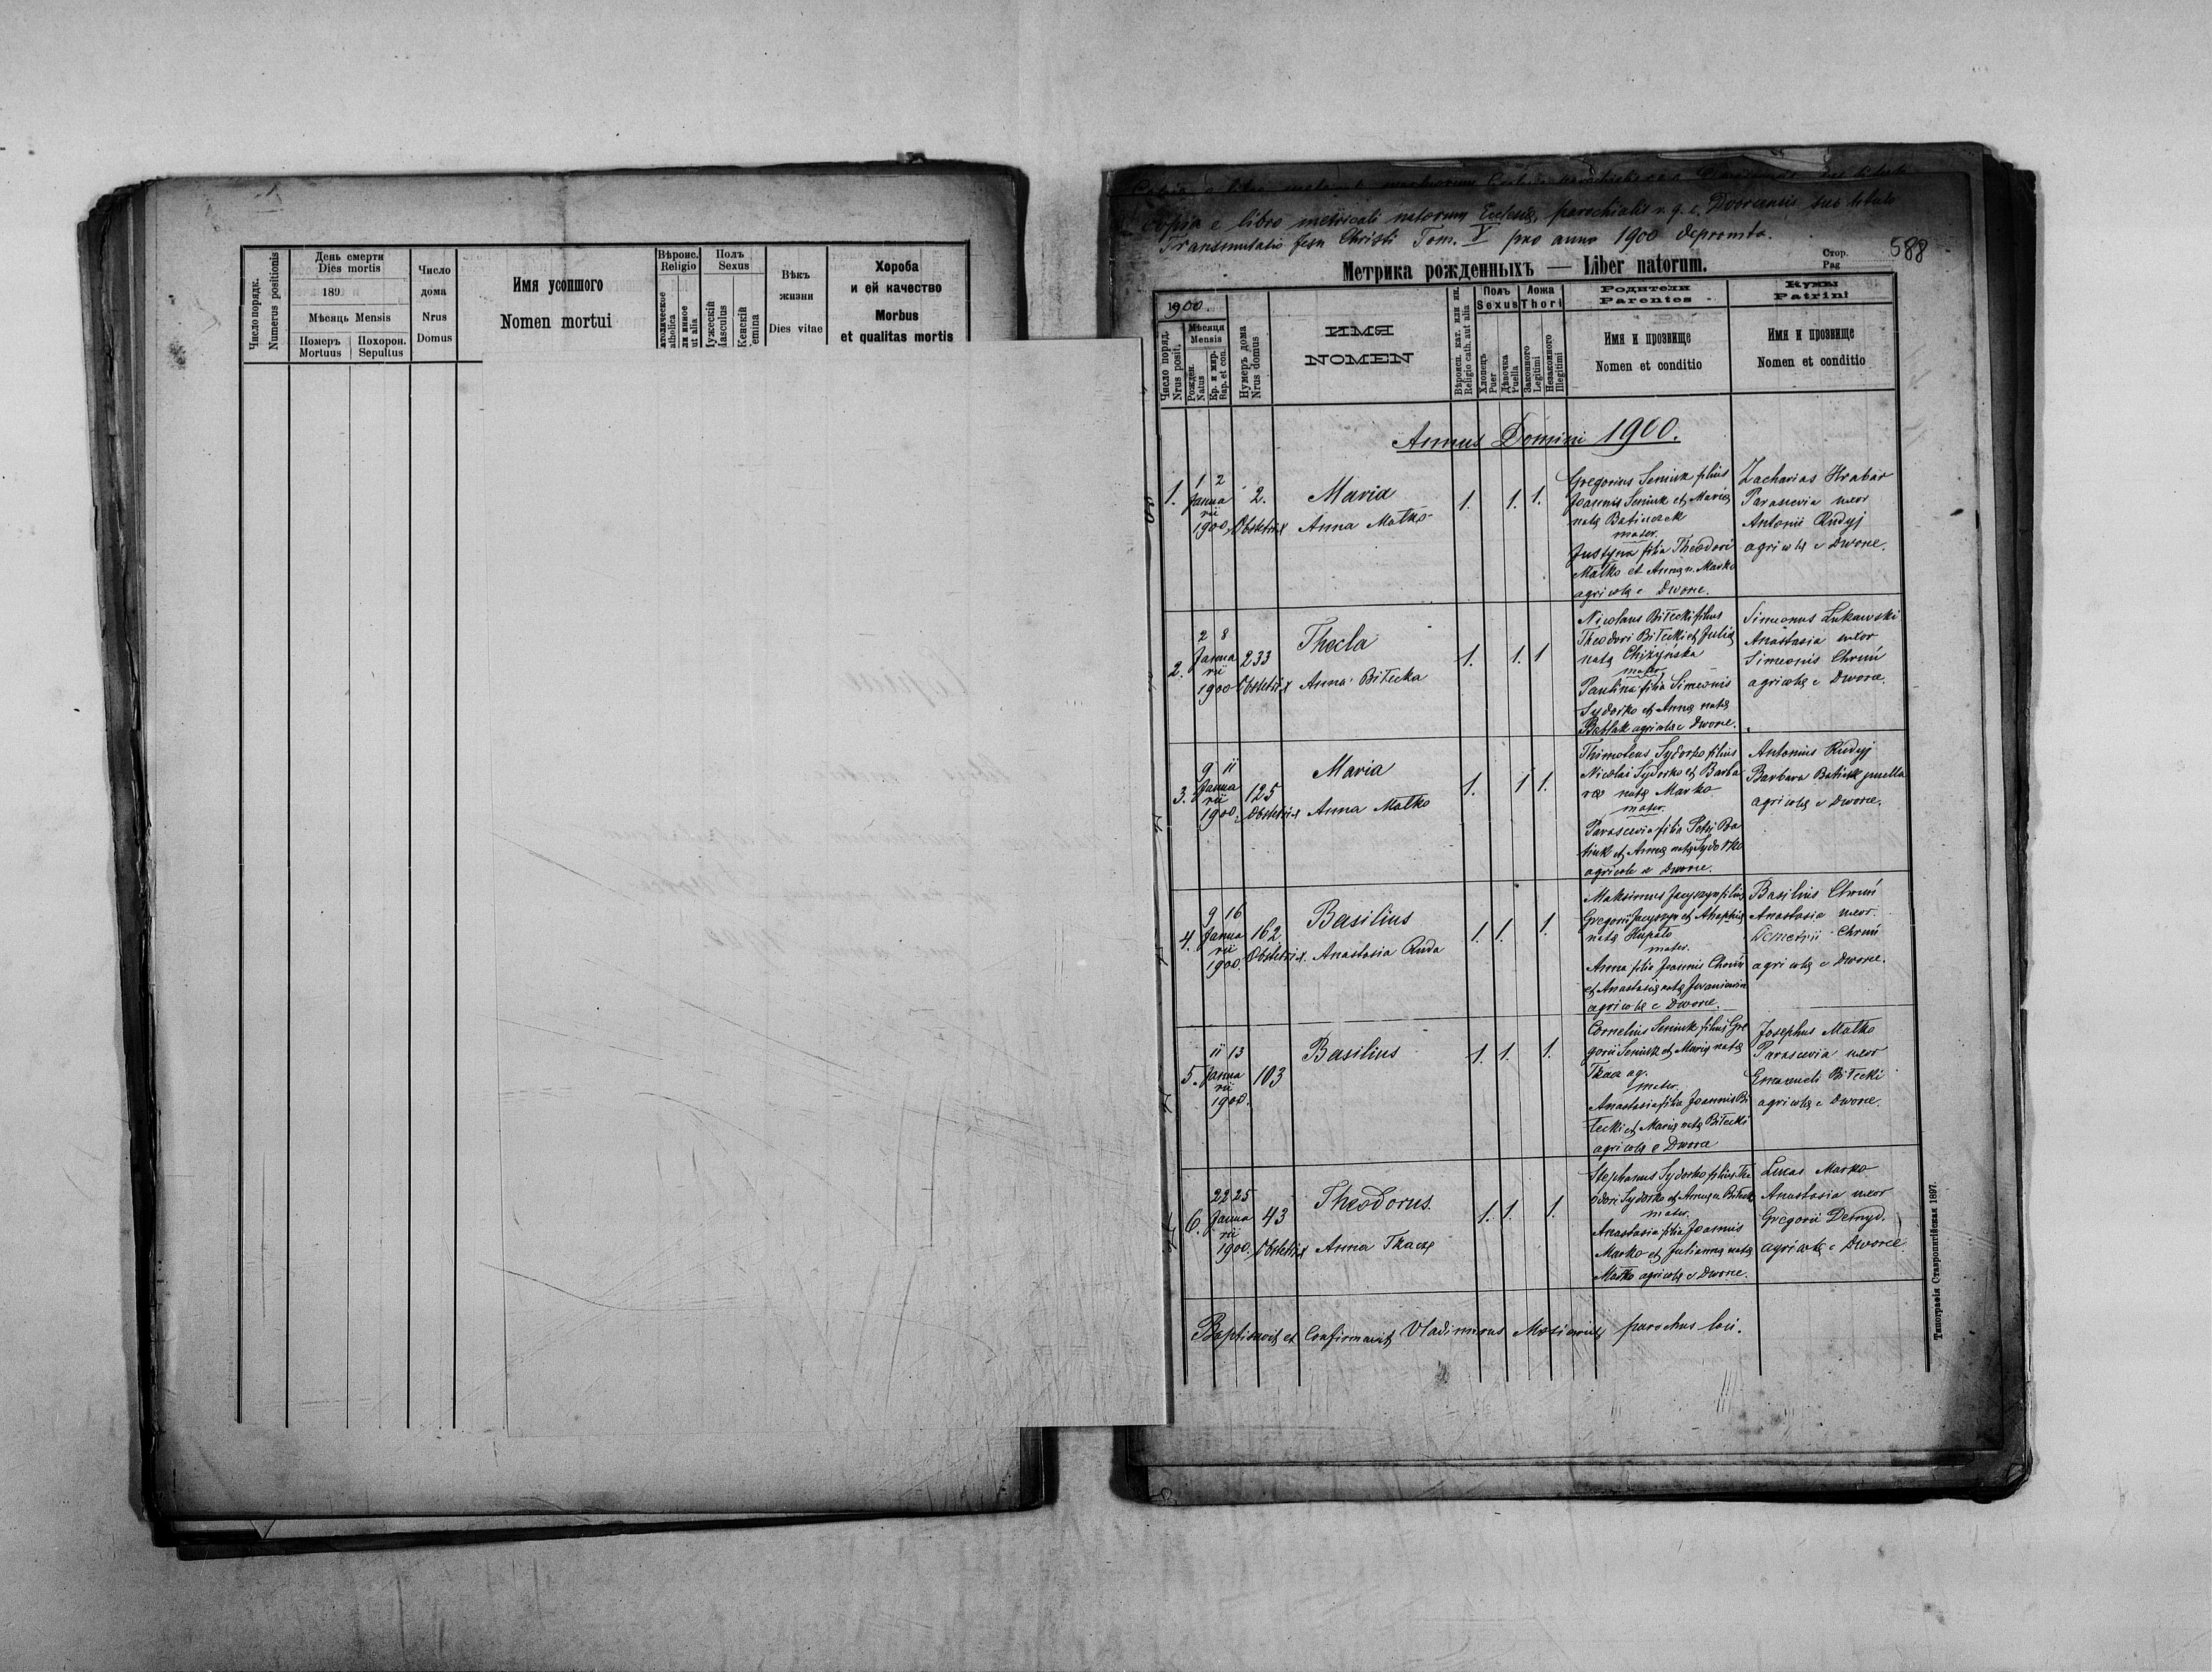 Число порядк.
Numerus positionis
День смерти
Dies mortis
189
Мѣсяць Mensis
Померъ
Mortuus
Похорон.
Sepultus
Число
дома
Nrus
Domus
Имя усопшого
Nomen mortui
Вѣроис.
Religio
Полъ
Sexus
Вѣкъ
жизни
Dies vitae
Хороба
и ей качество
Morbus
et qualitas mortis
Copia e libro metricali natorum Ecclesiæ parochialis r. g. c. Dobrensis sub titulo
Transmutatio Jesu Christi Tom. V pro anno 1900 deprompta.
Метрика рожденныхъ — Liber natorum.
Стор.
Pag
588
1900
Число поряд.
Nrus posit.
Мѣсяця
Mensis
Рожден.
Natus
Кр. и мѵр.
Bap. et con.
Нумеръ дома
Nrus domus
ИМЯ
NOMEN
Вѣроисп. кат. или ин.
Religio cath. aut alia
Полъ
Sexus
Хлопецъ
Puer
Дѣвочка
Puella
Ложа
Thori
Законного
Legitimi
Незаконного
Illegitimi
Родители
Parentes
Имя и прозвище
Nomen et conditio
Кумы
Patrini
Имя и прозвище
Nomen et conditio
Annus Domini 1900.
1.
1 2
Janua
rii
1900.
2.
Obstetrix
Maria
Anna Małko
1. 1. 1.
Gregorius Seniuk filius
Joannis Seniuk et Mariæ
natæ
mater.
Justyna filia Theodori
Małko et Annæ n. Marko
agricolæ e Dwore.
Zacharias Hrabar
Parascevia uxor
Antonii Rudyj
agricolæ e Dwore.
2.
2 8
Janua
rii
1900
233
Obstetrix
Thecla
Anna Biłecka
1. 1. 1
Nicolaus Biłecki filius
Theodori Biłecki et Juliæ
natæ Chiżyńska
mater
Paulina filia Simeonis
Sydorko et Annæ natæ
agricolæ e Dwore.
Simeonus Lukawski
Anastasia uxor
Simeonis Chruń
agricolæ e Dwore.
3.
9 11
Janua
rii
1900.
125
Obstetrix
Maria
Anna Małko
1. 1 1.
Thimoteus Sydorko filius
Nicolai Sydorko et Barba
ræ natæ Marko
mater.
Parascevia filia Petri Ba
tiuk et Annæ natæ Sydorko
agricolæ e Dwore.
Antonius Rudyj
Barbara Batiuk puella
agricolæ e Dwore.
4.
9 16
Janua
rii
1900.
162
Obstetrix.
Basilius
Anastasia Ruda
1. 1. 1.
Maksimus Jacyszyn filius
Gregorii Jacyszyn et Ahaphiæ
natæ Hupało
mater.
Anna filia Joannis Chruń
et Anastasiæ natæ
agricolæ e Dwore.
Basilius Chruń
Anastasia uxor
Demetrii Chruń
agricolæ e Dwore.
5.
11 13
Janua
rii
1900.
103
Basilius
1. 1. 1.
Cornelius Seniuk filius Gre
gorii Seniuk et Mariæ natæ
Tkacz ag.
mater.
Anastasia filia Joannis Bi
łecki et Mariæ natæ Biłecki
agricolæ e Dwore
Josephus Małko
Parascevia uxor
Emanueli Biłecki
agricolæ e Dwore.
6.
22 25
Janua
rii
1900.
43
Obstetrix
Theodorus.
Anna Tkacz
1. 1. 1.
Stephanus Sydorko filius The
odori Sydorko et Annæ n. Biłecki
mater.
Anastasia filia Joannis
Marko et Juliannæ natæ
Małko agricolæ e Dwore.
Lucas Marko
Anastasia uxor
Gregorii Demyd.
agricolæ e Dwore
Baptisavit et Confirmavit Vladimirus parochus loci.
Типографія Ставропигійская 1897.